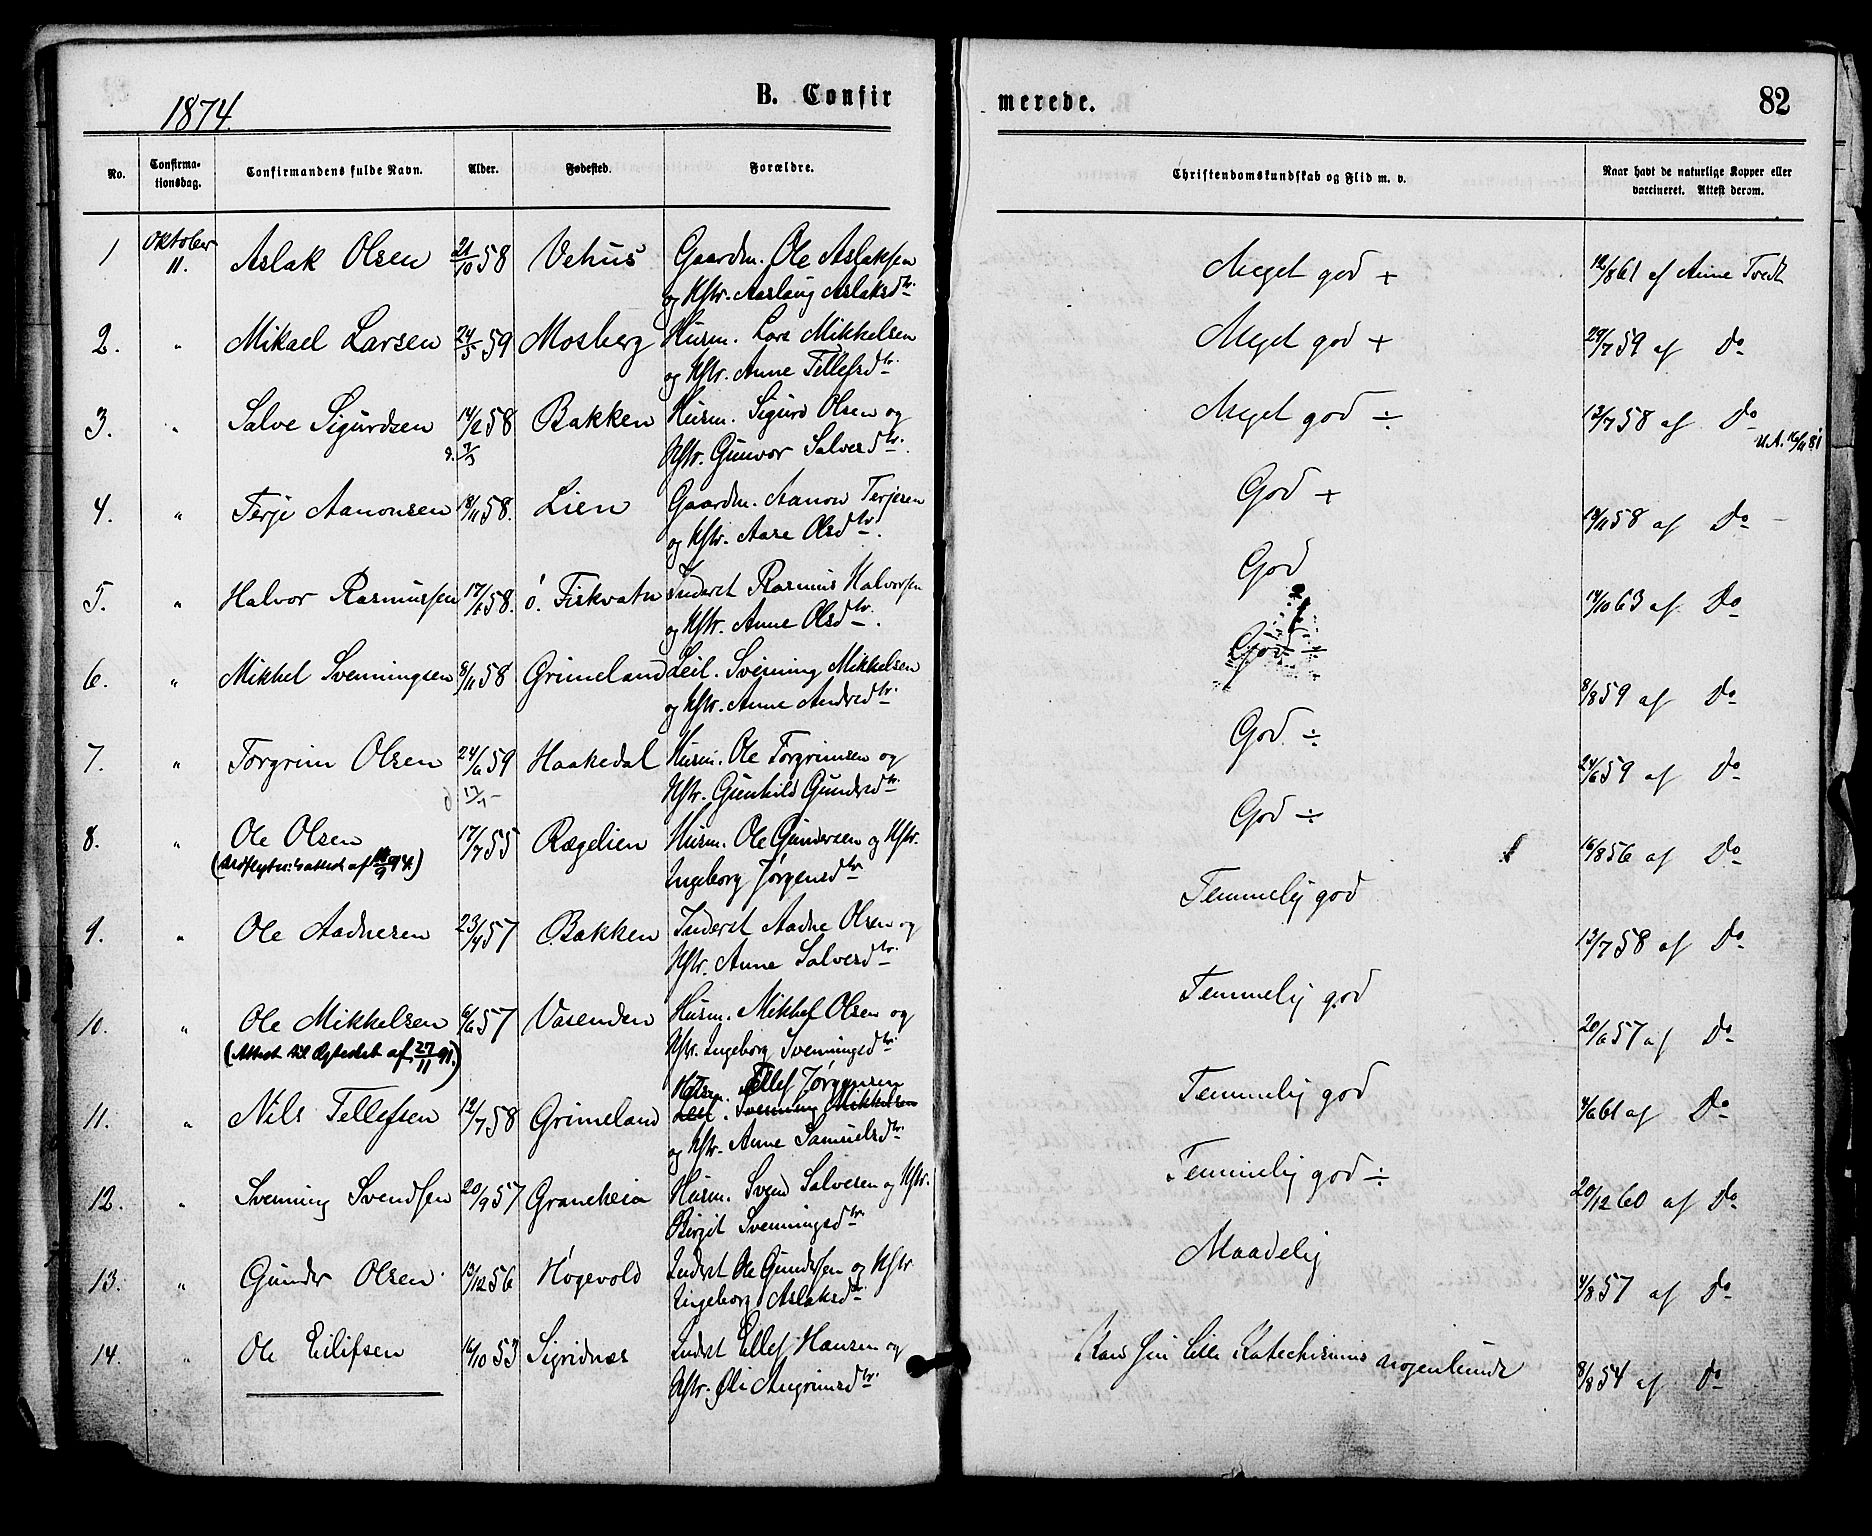 1874.
B. Confir
merede.
82
No.
Confirma-
tionsdag.
Confirmandens fulde Navn.
Alder.
Fødested.
Forældre.
Christendomskundskab og Flid m. v.
Naar havt de naturlige Kopper eller
vaccineret. Attest derom.
1 Oktober 11. Aslak Olsen 21/10 58 Vehus Gaardm. Ole Aslaksen
og Hstr. Aaslaug Aslaksdtr. Meget god + /861 af Anne Tvedt
2. " Mikael Larsen 24/5 59 Mosberg Husm. Lars Mikkelsen
og Hstr. Anne Tellefsdtr. Meget god + 29/7 59 af Do
3. " Salve Sigurdsen 14/2 58 Bakken Husm. Sigurd Olsen og
Hstr. Gunvor Salvesdtr. Meget god ÷ 13/7 58 af Do
4. " Terje Aanonsen 18/11 58. Lien Gaardm. Aanon Terjesen
og Hstr. Aase Olsdtr. God + /11 58 af Do
5. " Halvor Rasmussen 17/6 58. ø. Fiskvatn Inderst Rasmus Halvorsen
og Hstr. Anne Olsdtr. God 14/10 63 af Do
6. " Mikkel Svenningsen 8/11 58 Grimeland Leil. Svenning Mikkelsen
og Hstr. Anne Andersdtr. God ÷ 8/8 59 af Do
7. " Torgrim Olsen 24/6 59 Haakedal Husm. Ole Torgrimsen og
Hstr. Gunhild Gundersdtr. God ÷ 24/6 59 af Do
8. " Ole Olsen 17/7 55 Rægelien Husm. Ole Gundersen og Hstr.
Ingeborg Jørgensdtr. God ÷ 16/8 56 af Do
9. " Ole Aadnesen 23/4 57 Bakken Inderst Aadne Olsen og
Hstr. Anne Salvesdtr. Temmelig god 13/7 58 af Do
10. " Ole Mikkelsen 6/6 57 Vasenden Husm. Mikkel Olsen og
(Attest til Ægteskab af 27/11 91.) Hstr. Ingeborg Svenningsdtr. Temmelig god 20/6 57 af Do
Husm. Tellef Jørgensen
11. " Nils Tellefsen 12/7 58 Grimeland Leil. Svenning Mikkelsen
og Hstr. Anne Samuelsdtr. Temmelig god 4/6 61 af Do
12. " Svenning Svendsen 20/9 57 Graneheia Husm. Svend Salvesen og Hstr.
Birgit Svenningsdtr. Temmelig god ÷ 20/12 60 af Do
13. " Gunder Olsen 13/12 56 Høgevold Inderst Ole Gundersen og Hstr
Ingeborg Aslaksdtr. Maadelig 4/8 57 af Do
14. " Ole Eilifsen 16/10 53 Sigridnæs Inderst Ellef Hansen og
Hstr. Øli Angrimsdtr. Kan sin lille Katechismus nogenlunde 8/8 54 af Do